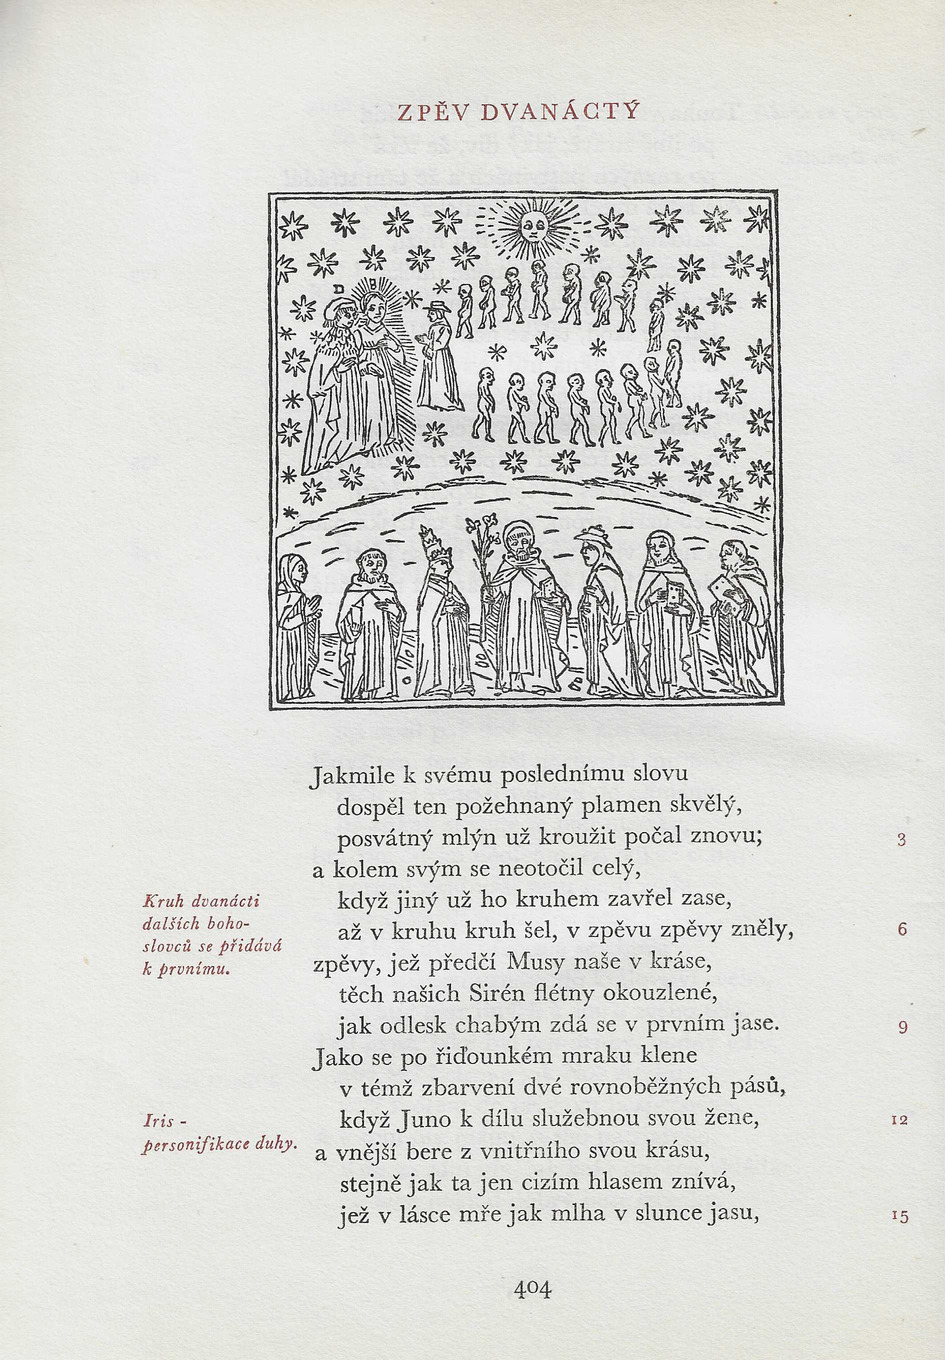 ZPĚV DVANÁCTÝ
D B
Jakmile k svému poslednímu slovu
dospěl ten požehnaný plamen skvělý,
posvátný mlýn už kroužit počal znovu;
3
a kolem svým se neotočil celý,
Kruh dvanácti
dalších boho-
slovců se přidává
k prvnímu.
když jiný už ho kruhem zavřel zase,
až v kruhu kruh šel, v zpěvu zpěvy zněly,
6
zpěvy, jež předčí Musy naše v kráse,
těch našich Sirén flétny okouzlené,
jak odlesk chabým zdá se v prvním jase.
9
Jako se po řiďounkém mraku klene
v témž zbarvení dvé rovnoběžných pásů,
Iris -
personifikace duhy.
když Juno k dílu služebnou svou žene,
12
a vnější bere z vnitřního svou krásu,
stejně jak ta jen cizím hlasem znívá,
jež v lásce mře jak mlha v slunce jasu,
15
404